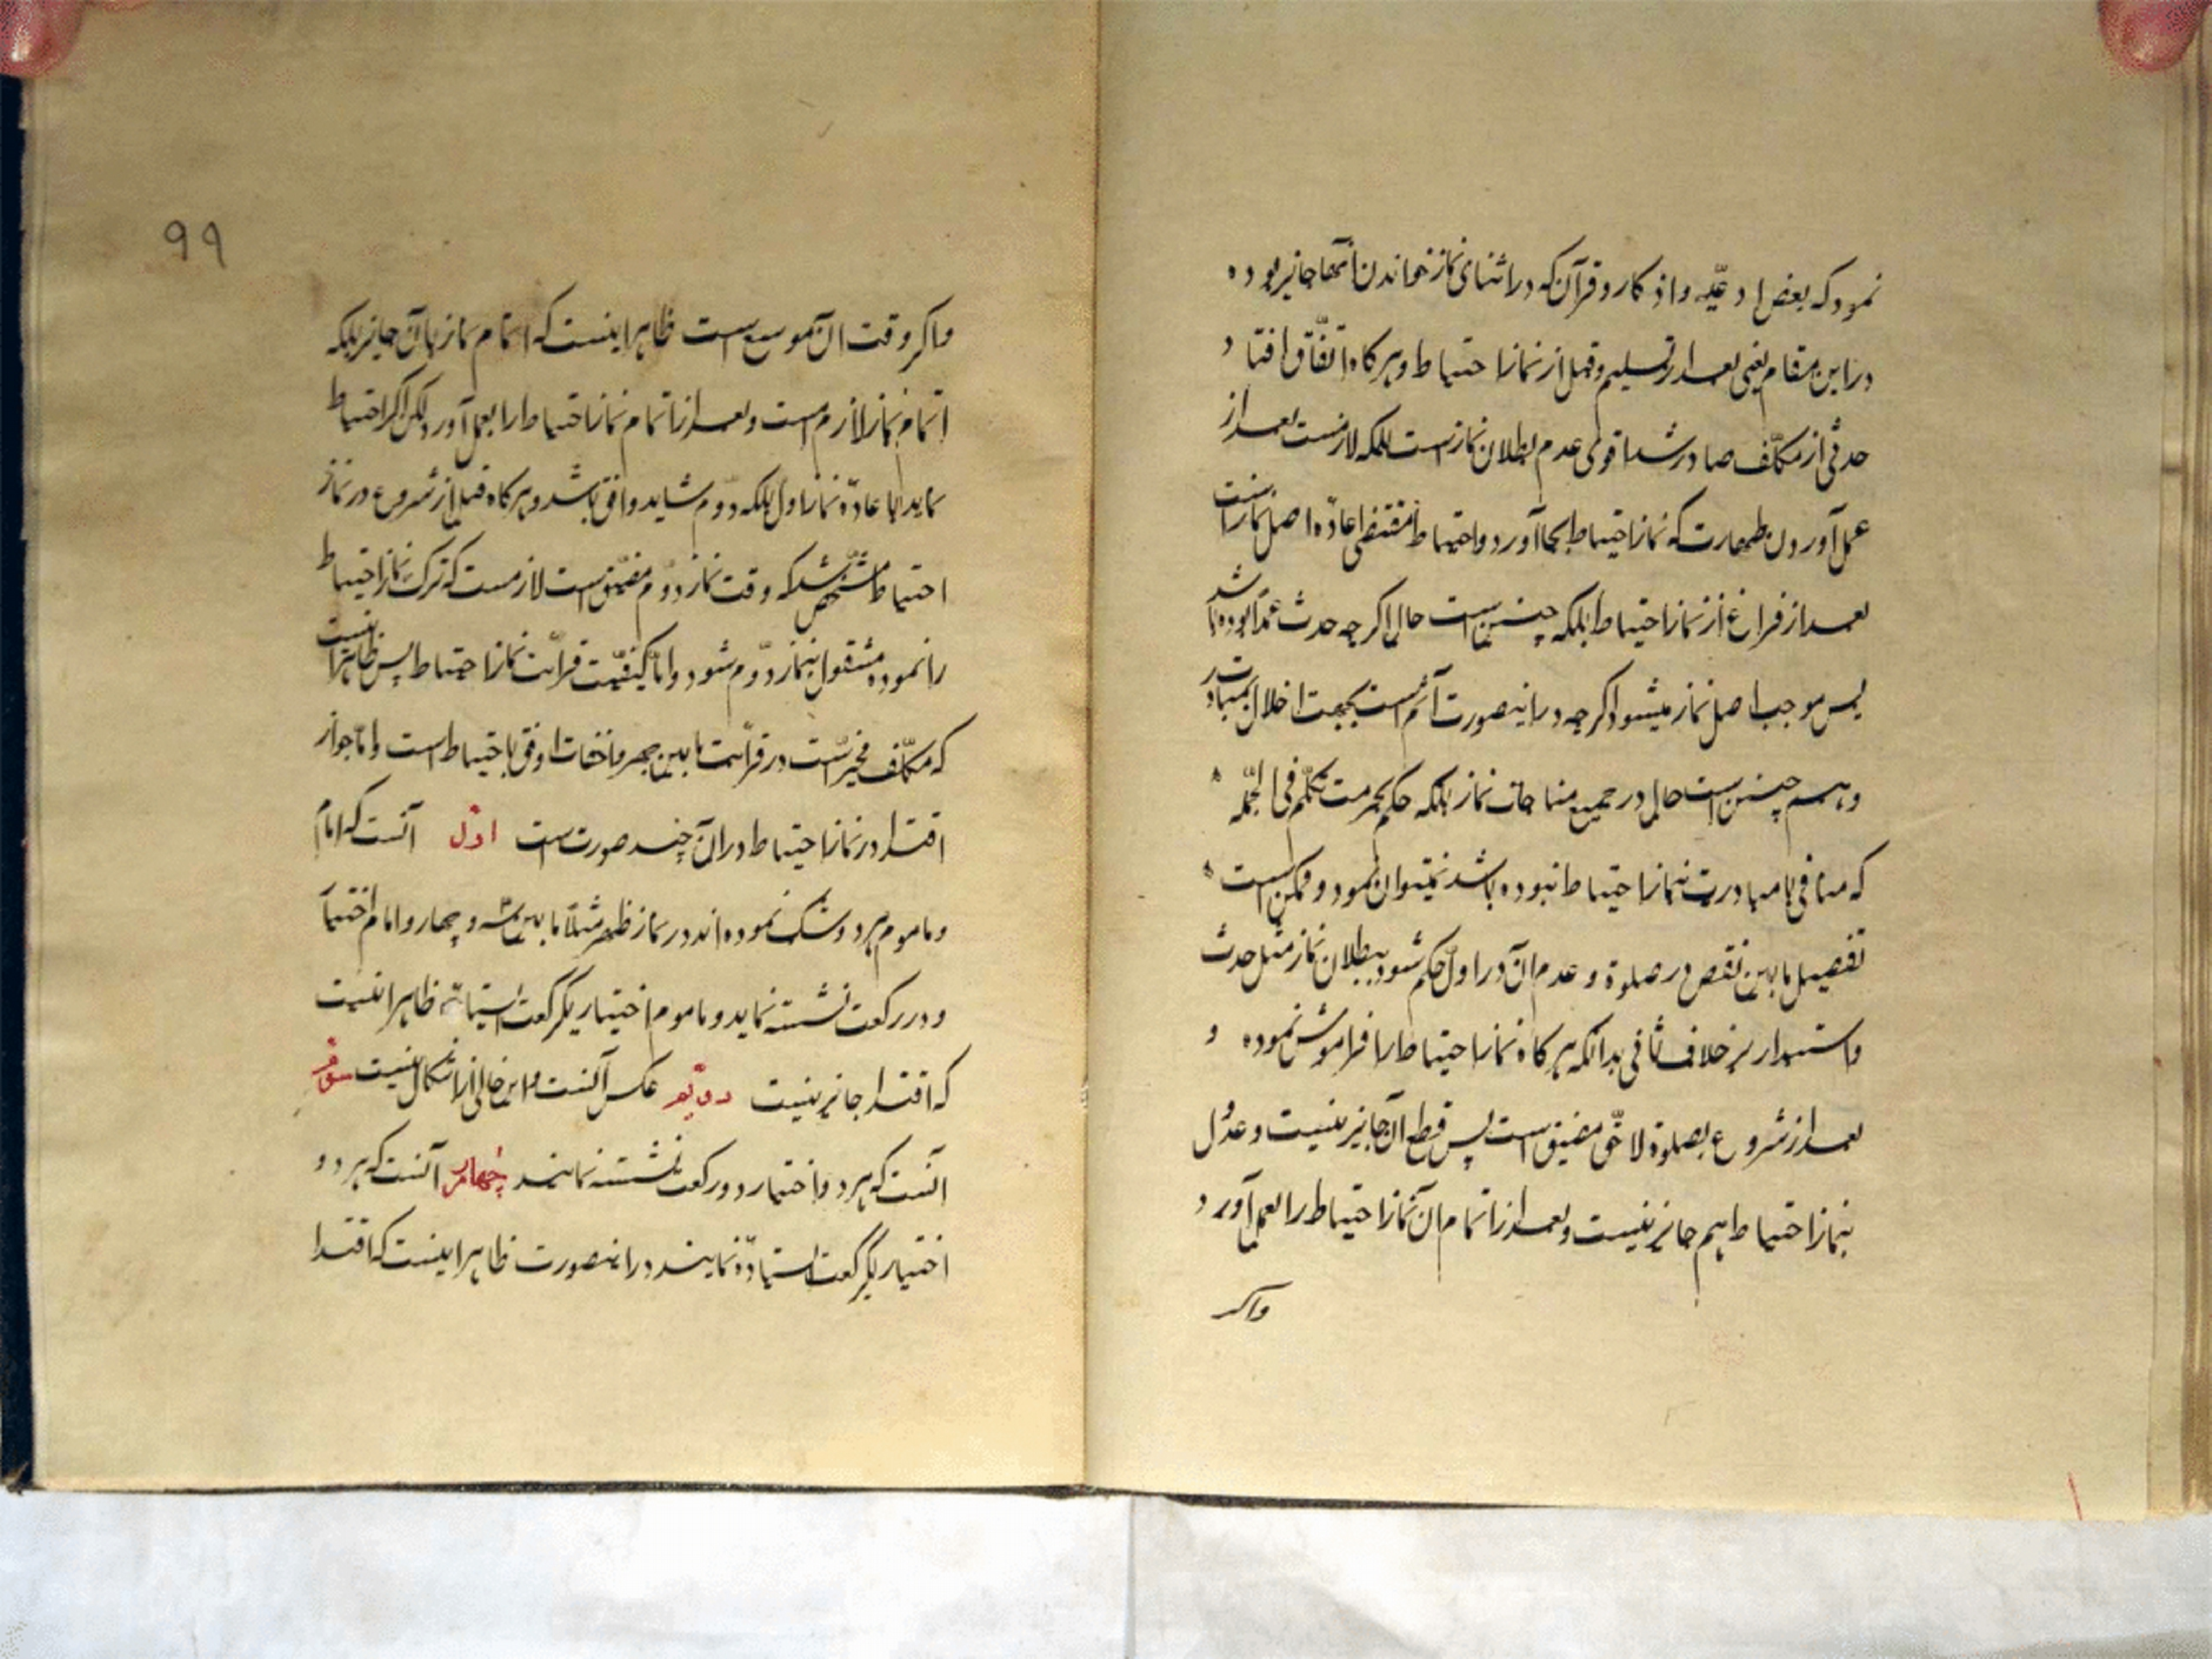 نمود که بعض ادعیّه و اذکار و قرآن که در اثنای نماز خواندن آنها جایز بوده
در این مقام یعنی بعد از تسلیم و قبل از نماز احتیاط و هرکاه اتّفاق افتاد
حدثی از مکلّف صادر شد اقوی عدم بطلان نماز است بلکه لازمست بعد از
عمل آوردن طهارت که نماز احتیاط بجا آورد و احتیاط مقتضی اعادّه اصل نماز است
بعد از فراغ از نماز احتیاط بلکه چنین است حال اکرچه حدث عمداً بوده باشد
پس موجب اصل نماز میشود اکرچه در اینصورت آثم است بجهت اخلال بمبادرت
و هم چنین است حال در جمیع منافیات نماز بلکه حکم بحرمت تکلّم فی الجمله
که منافی با مبادرت بنماز احتیاط نبوده باشد نمیتوان نمود و ممکن است
تفصیل مابین نقص در صلوة و عدم آن در اول حکم شود ببطلان نماز مثل حدث
و استدبار بخلاف ثانی بدانکه هرکاه نماز احتیاط را فراموش نموده و
بعد از شروع بصلوة لاحق مضیق است پس قطع آن جایز نیست و عدول
بنماز احتیاط هم جایز نیست و بعد از اتمام آن نماز احتیاط را بعمل آورد
واکر
۹۹
واکر وقت آن موسع است ظاهر اینست که اتمام نماز بآن جایز بلکه
اتمام نماز لازم است و بعد از اتمام نماز احتیاط را بعمل آورد لکن اکر احتیاط
نماید با عادّه نماز اول بلکه دوّم شاید وافق باشد و هرکاه قبل از شروع در نماز
احتیاط مشخّص شد که وقت نماز دوّم مضیّق است لازمست که ترک نماز احتیاط
را نموده مشقول بنماز دوّم شود و امّا کیفیّت قرائت نماز احتیاط پس ظاهر اینست
که مکلّف مخیّر است در قرائت مابین جهر و اخفات اوفق باحتیاط است و امّا جواز
اقتدا در نماز احتیاط در آن چند صورت است اوّل آنست که امام
و ماموم هردو شک نموده اند در نماز ظهر مثلاً مابین سه و چهار و امام اختیار
دو رکعت نشسته نماید و ماموم اختیار یکرکعت استیاده ظاهر اینست
که اقتدا جایز نیست دویّم عکس آنست و این خالی از اشکال نیست سوّم
آنست که هردو اختیار دو رکعت نشسته نمایند چهارم آنست که هردو
اختیار یکرکعت استیادّه نمایند در اینصورت ظاهر اینست که اقتدا